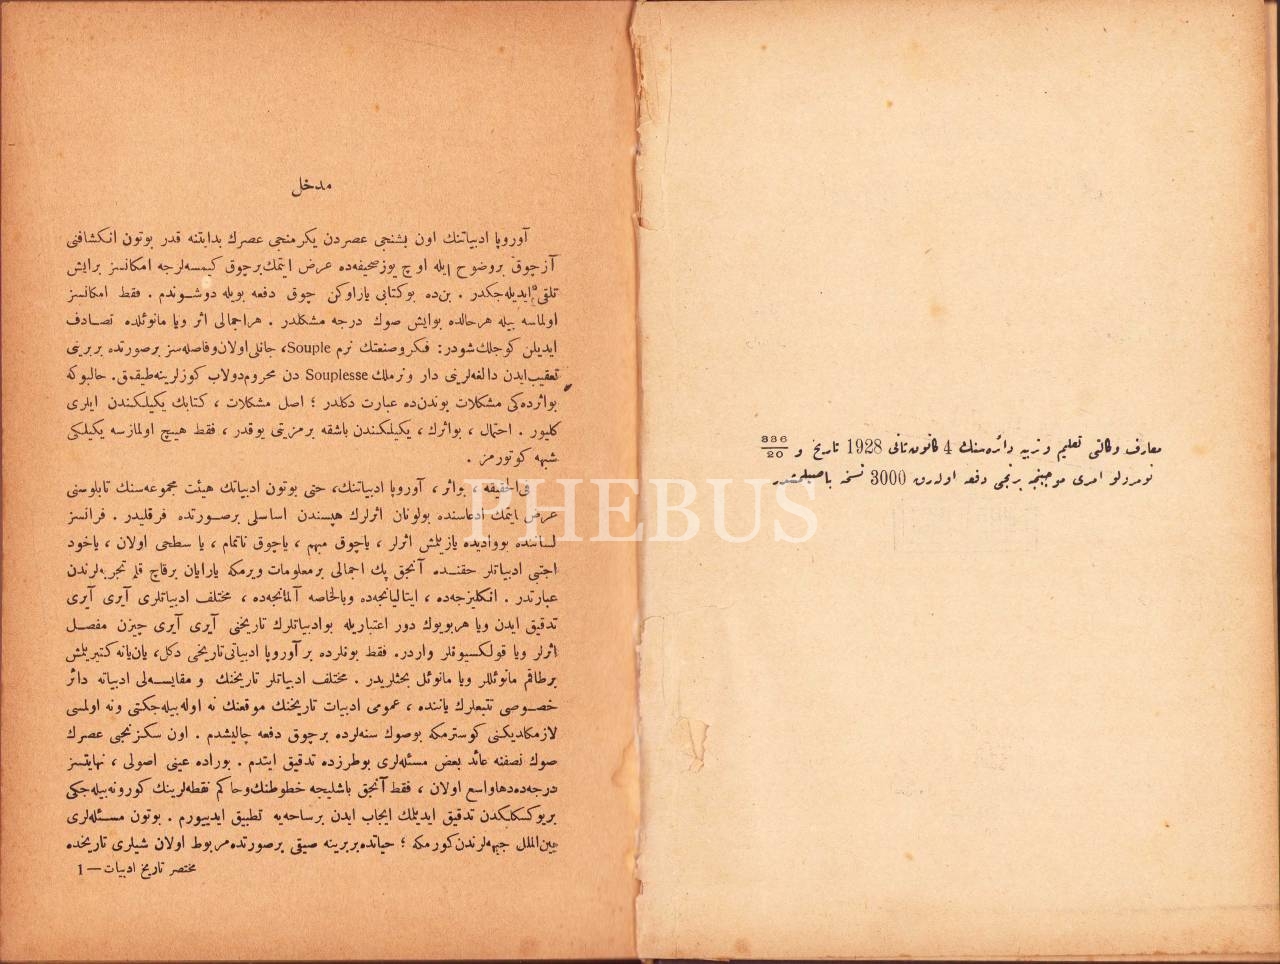 معارف وكالتی تعلیم و تربیه دائره‌سنك 4 كانون‌ثانی 1928 تاریخ و 336/20
نومرولو امری موجبنجه برنجی دفعه اوله‌رق 3000 نسخه باصیلمشدر
مدخل
آوروپا ادبیاتنك اون بشنجی عصردن یكرمنجی عصرك بدایتنه قدر بوتون انكشافنی
آزچوق بروضوح ایله اوچ یوزصحیفه‌ده عرض ایتمك‌برچوق كیمسه‌لرجه امكانسز برایش
تلقی ایدیله‌جكدر . بن‌ده بوكتابی یازاركن چوق دفعه بویله دوشوندم . فقط امكانسز
اولماسه بیله هرحالده بوایش صوك درجه مشكلدر . هراجمالی اثر ویا مانوئلده تصادف
ایدیلن كوجلك‌شودر: فكروصنعتك نرم Souple، جانلی‌اولان‌وفاصله‌سز برصورتده بربرینی
تعقیب‌ایدن دالغه‌لرینی دار ونرملك Souplesse دن محروم‌دولاب كوزلرینه‌طیقمق. حالبوكه
بواثرده‌كی مشكلات بوندن‌ده عبارت دكلدر ؛ اصل مشكلات ، كتابك یكیلكندن ایلری
كلیور . احتمال ، بواثرك ، یكیلكندن باشقه برمزیتی یوقدر ، فقط هیچ اولمازسه یكیلكی
شبهه كوتورمز .
فی‌الحقیقه ، بواثر ، آوروپا ادبیاتنك، حتی بوتون ادبیاتك هیئت مجموعه‌سنك تابلوسنی
عرض ایتمك ادعاسنده بولونان اثرلرك هپسندن اساسلی برصورتده فرقلیدر . فرانسز
لساننده بووادیده یازیلمش اثرلر ، یاچوق مبهم ، یاچوق ناتمام ، یا سطحی اولان ، یاخود
اجنبی ادبیاتلر حقنده آنجق پك اجمالی برمعلومات ویرمكه یارایان برقاچ قلم تجربه‌لرندن
عبارتدر . انكلیزجه‌ده ، ایتالیانجه‌ده وبالخاصه آلمانجه‌ده ، مختلف ادبیاتلری آیری آیری
تدقیق ایدن ویا هربویوك دور اعتباریله بوادبیاتلرك تاریخنی آیری آیری چیزن مفصل
اثرلر ویا قولكسیونلر واردر. فقط بونلرده بر آوروپا ادبیاتی‌تاریخی دكل، یان‌یانه كتیریلمش
برطاقم مانوئللر ویا مانوئل بحثلریدر . مختلف ادبیاتلر تاریخنك و مقایسه‌لی ادبیاته دائر
خصوصی تتبعلرك یاننده ، عمومی ادبیات تاریخنك موقعنك نه اوله‌بیله‌جكنی ونه اولمسی
لازمكلدیكنی كوسترمكه بوصوك سنه‌لرده برچوق دفعه چالیشدم . اون سكزنجی عصرك
صوك نصفنه عائد بعض مسئله‌لری بوطرزده تدقیق ایتدم . بوراده عینی اصولی ، نهایتسز
درجه‌ده‌دهاواسع اولان ، فقط آنجق باشلیجه خطوطنك‌وحاكم نقطه‌لرینك كورونه‌بیله‌جكی
بریوكسكلكدن تدقیق ایدیلمك ایجاب ایدن برساحه‌یه تطبیق ایدییورم . بوتون مسئله‌لری
بین‌الملل جبهه‌لرندن‌كورمكه ؛ حیاتده‌بربرینه صیقی برصورتده‌مربوط اولان شیلری تاریخده
مختصر تاریخ ادبیات — 1
PHEBUS